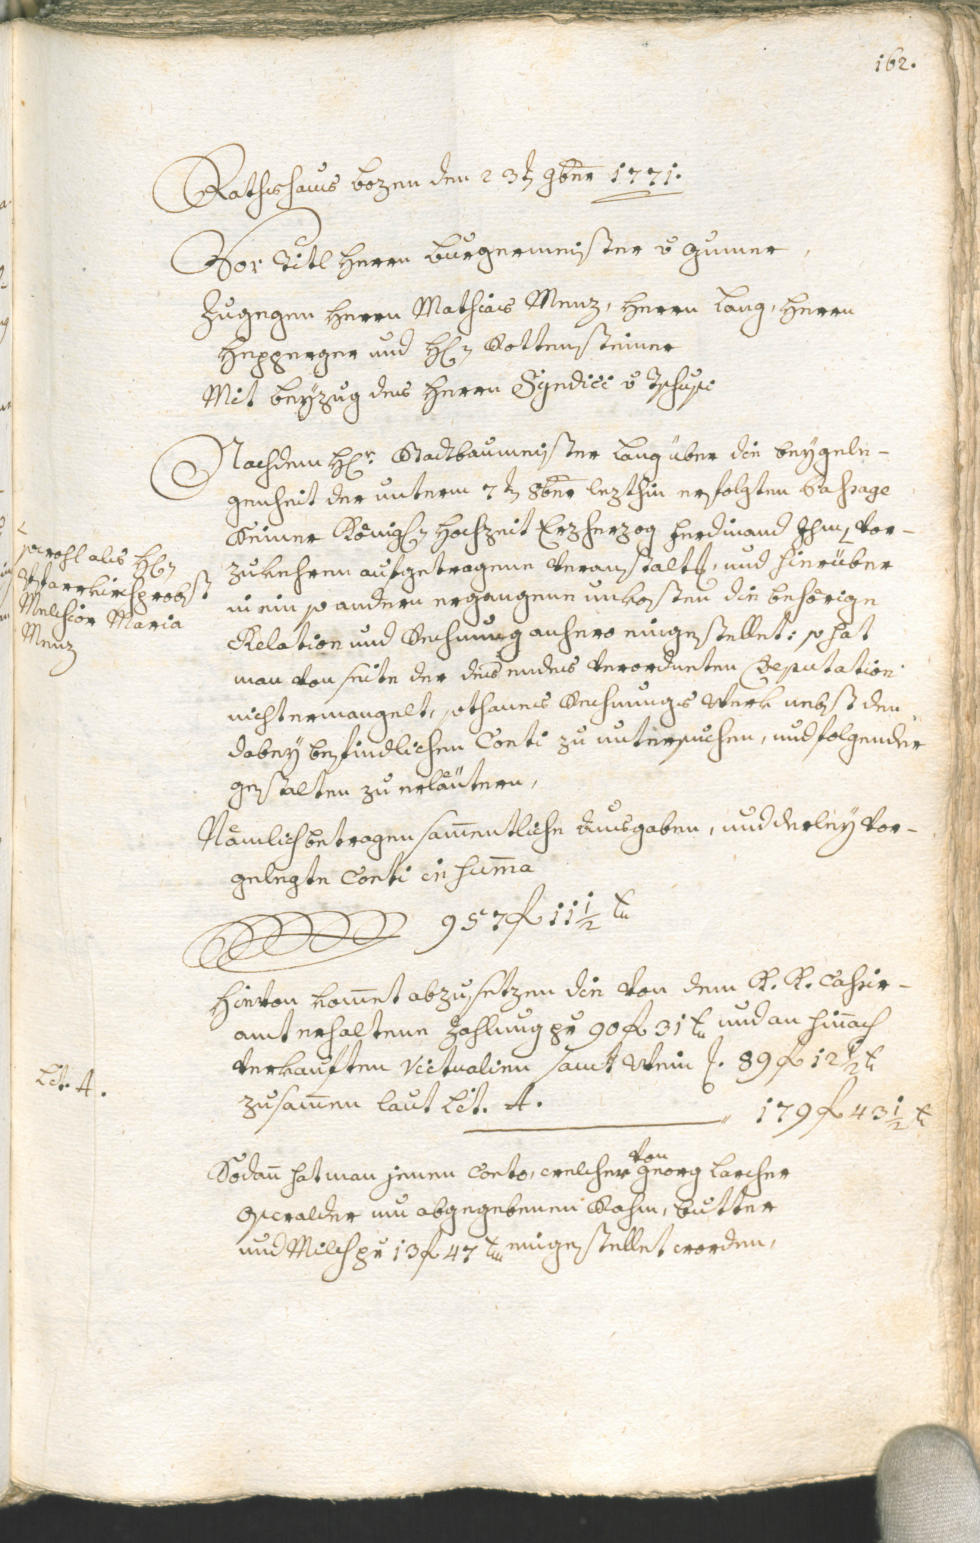 162.
Rathshaus Bozen den 23t 9ber 1771.
Vor Titl Herrn Burgermeister v Gumer,
Zugegen Herrn Mathias Menz, Herrn Lang, Herrn
Hepperger und H: Kottensteiner
Mit beyzug des Herrn Syndici v Tschusi
Nachdem H:r Stadtbaumeister Lang über die beygele-
genheit der unterm 7t 8ber lezthin erfolgten
Seiner Königl: Hochheit Erzherzog Ferdinand Ihme vor-
zukehren aufgetragene Veranstalt:, und hierüber
in ein so andern ergangene unkosten die behörige
Relation und Rechnung anhero eingestellet: so hat
man von seite der dis endes verordneten Deputation
nicht ermangelt, sothanes Rechnungs Werk nebst den
dabey befindlichen Conti zu untersuchen, und folgender
gestalten zu erläutern,
sowohl als H:
Pfarrkirchprobst
Melchior Maria
Menz
Nämlich betragen sam̄entliche ausgaben, und derley vor-
gelegte Conti in Sum̄a
957 f 11 1/2 x
Hievon kom̄et abzusetzen die von dem K. K. Cassir-
amt erhaltene Zahlung pr 90 f 31 x und an hinnach
verkauften Victualien samt Wein p. 89 f 12 1/2 x
zusam̄en laut Lit. A. 179 f 43 1/2 x
Lit. A.
Sodan̄ hat man jenen Conto, welcher von Georg Larcher
um abgegebenen Rahm, Butter
und Milch pr 13 f 47 x eingestellet worden,